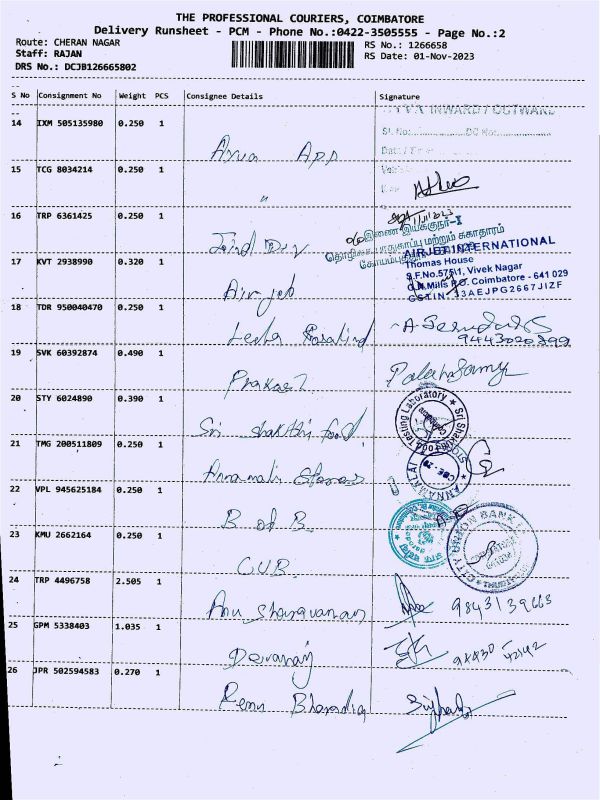 THE PROFESSIONAL COURIERS, COIMBATORE
Delivery Runsheet - PCM - Phone No.:0422-3505555 - Page No.:2
Route: CHERAN NAGAR
RS No.: 1266658
Staff: RAJAN
RS Date: 01-Nov-2023
DRS No.: DCJB126665802
S No Consignment No Weight PCS Consignee Details Signature
14 IXM 505135980 0.250 1
INWARD / OUTWARD
Sl. No: DC No:
15 TCG 8034214 0.250 1
"
16 TRP 6361425 0.250 1
இணை இயக்குநர்-I
தொழிலக பாதுகாப்பு மற்றும் சுகாதாரம்
17 KVT 2938990 0.320 1
AIRJET INTERNATIONAL
Thomas House
S.F.No.575\1, Vivek Nagar
G.N.Mills P.O. Coimbatore - 641 029
GSTIN: 33AEJPG2667JIZF
Airjet
18 TDR 950040470 0.250 1
Leeba Rosalind
19 SVK 60392874 0.490 1
Prakash
20 STY 6024890 0.390 1
Sri Shakthi food
21 TMG 200511809 0.250 1
Annamalai Stores
22 VPL 945625184 0.250 1
B of B
23 KMU 2662164 0.250 1
CUB
CITY UNION BANK
24 TRP 4496758 2.505 1
Anu Sharavanan 9843139663
25 GPM 5338403 1.035 1
Devaraj 98430 42142
26 JPR 502594583 0.270 1
Renu Bharadia